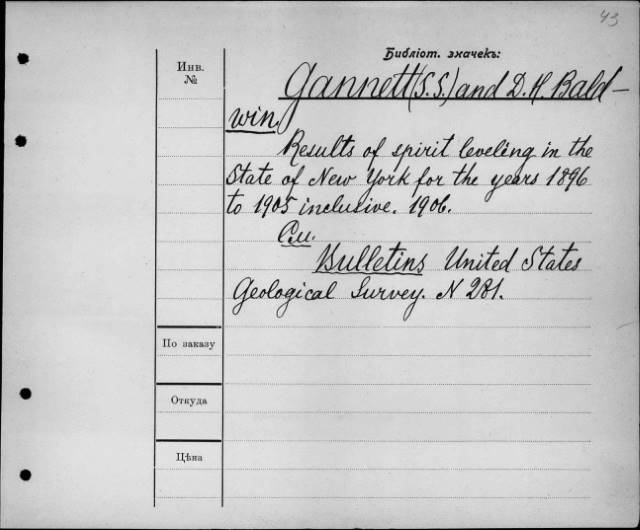 43
Библіот. значекъ:
Инв.
№
Gannett (S.S.) and D. H. Bald-
win.
Results of spirit leveling in the
State of New York for the years 1896
to 1905 inclusive. 1906.
См.
Bulletins United States
Geological Survey. N 281.
По заказу
Откуда
Цѣна